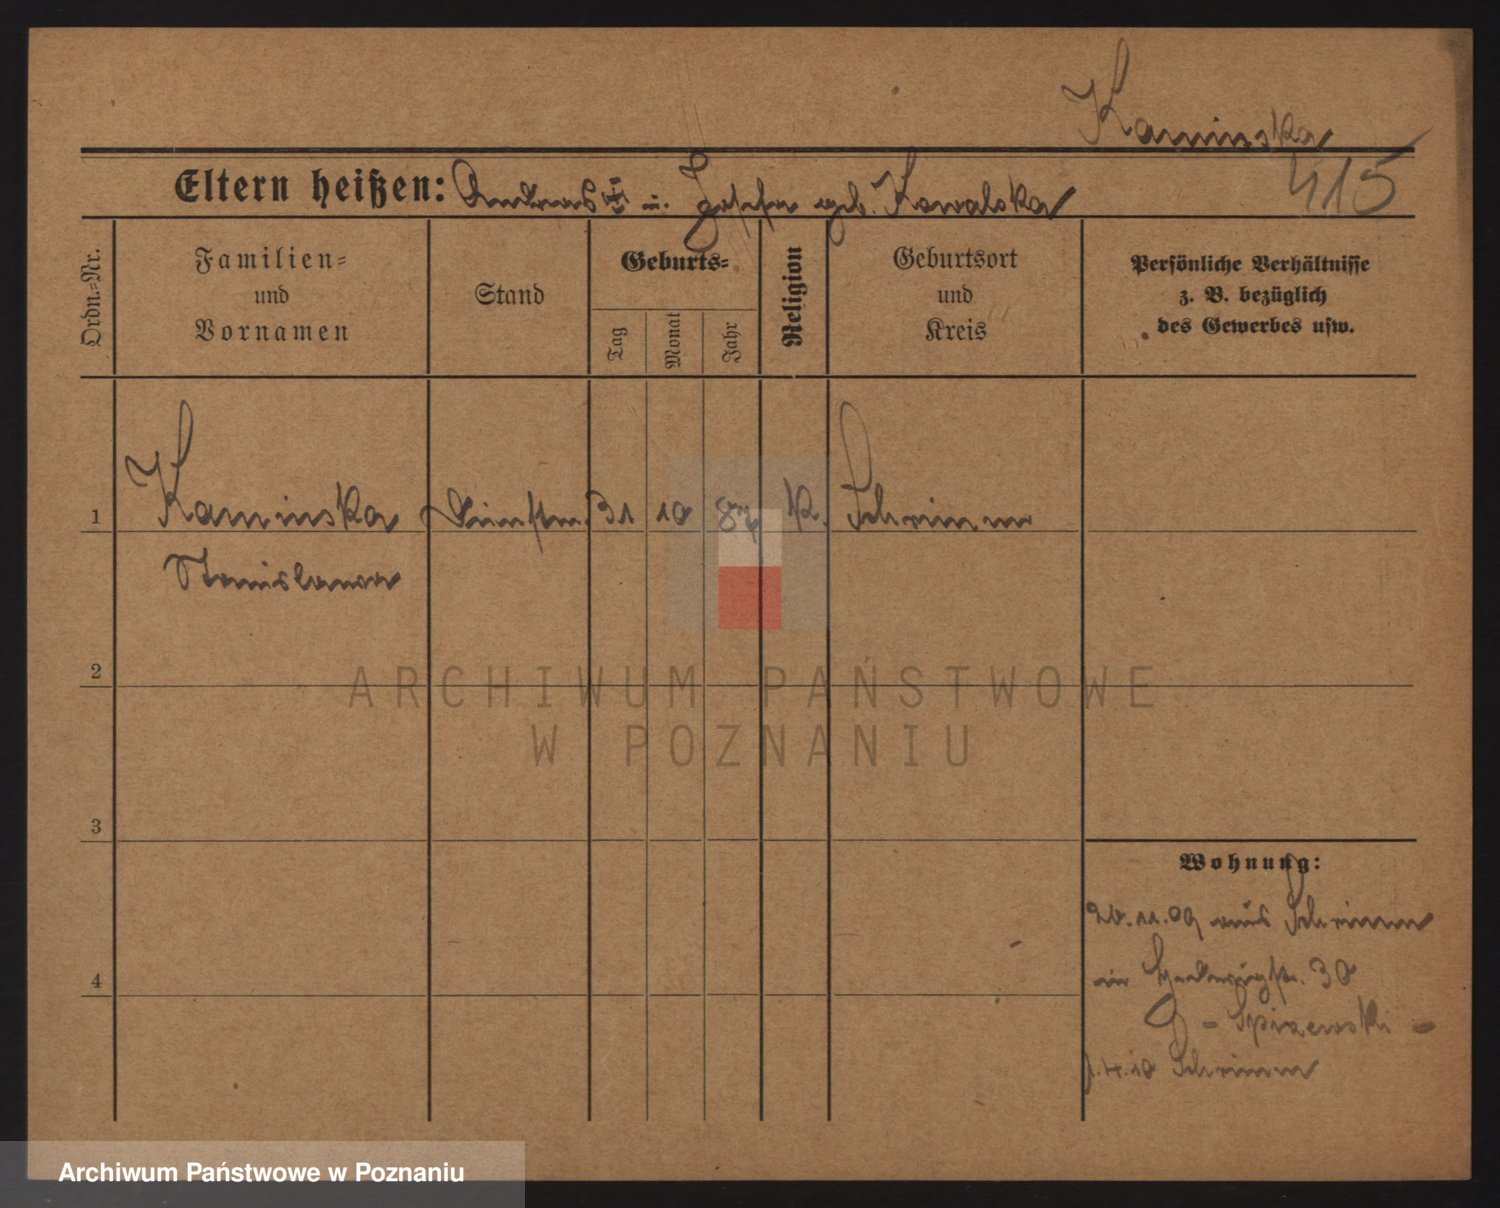 Kaminska
415
Eltern heißen: Andreas u. Josefa geb. Kowalska
Ordn.=Nr.
Familien=
und
Vornamen
Stand
Geburts=
Tag
Monat
Jahr
Religion
Geburtsort
und
Kreis
Persönliche Verhältnisse
z. B. bezüglich
des Gewerbes usw.
1 Kaminska 31 10 K. Schrimm
Stanislawa
2
3
4
Wohnung:
20.11.09 aus Schrimm
in Hedwigstr. 30
1.4.10 Schrimm
ARCHIWUM PAŃSTWOWE
W POZNANIU
Archiwum Państwowe w Poznaniu